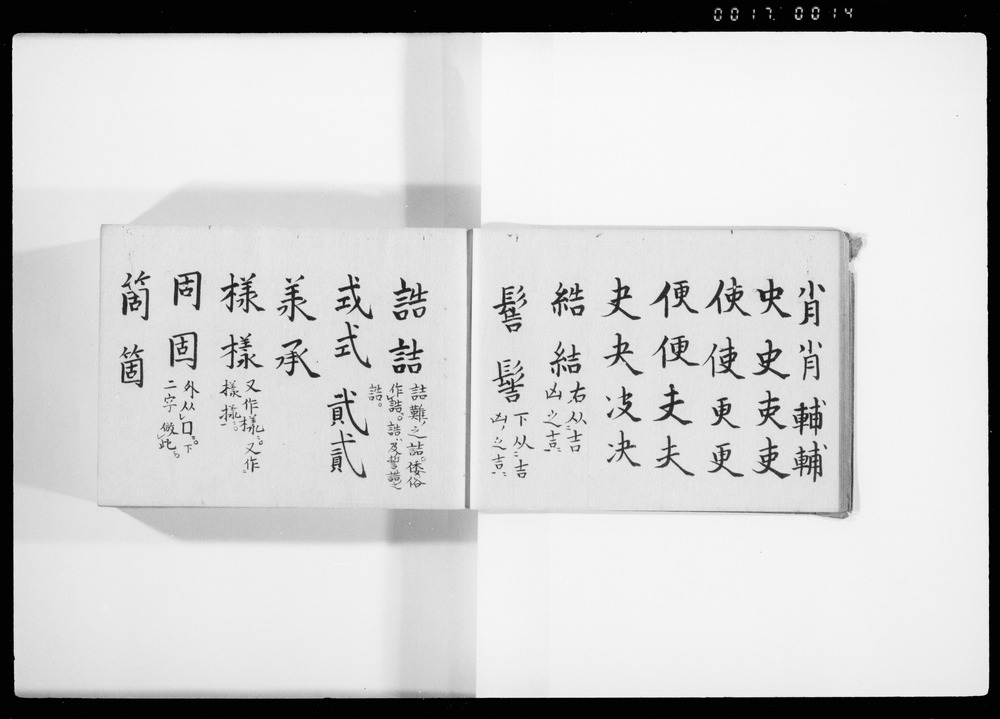 0017 0014
肖肖輔輔
史史吏吏
使使更更
便便夫夫
夬夬决决
結結右从吉
凶之吉
髻髻下从吉
凶之吉
誥詰詰難之詰。倭俗
作誥。誥及誓誥之
誥。
式式貳貳
羕承
様様又作様。又作
様様。
周固外从囗。下
二字倣此。
箇箇